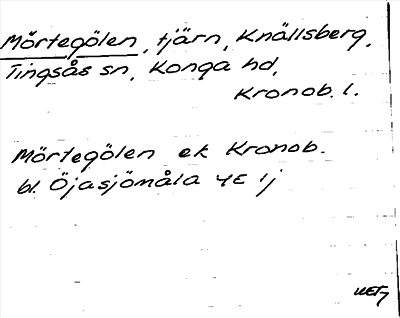 Mörtegölen, tjärn, Knällsberg,
Tingsås sn, Konga hd,
Kronob. l.
Mörtegölen ek Kronob.
bl. Öjasjömåla 4E 1j